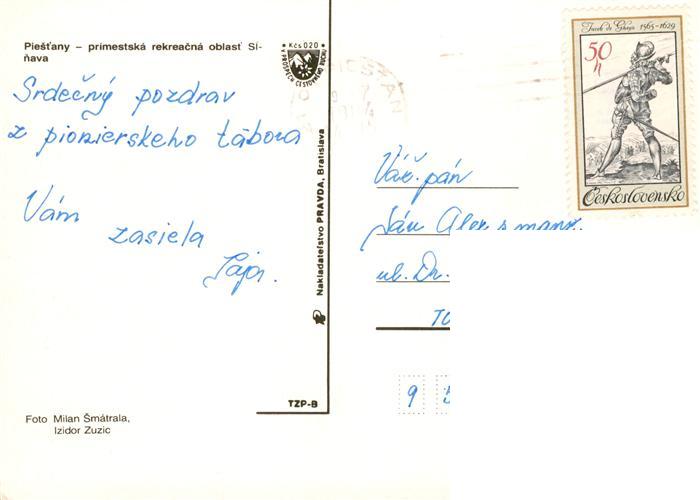 Piešťany – prímestská rekreačná oblasť Sĺ-
ňava
Srdečný pozdrav
z pionierskeho tábora
Vám
zasiela
Kčs 0,20
Nakladateľstvo PRAVDA, Bratislava
TZP-B
Foto Milan Šmátrala,
Izidor Zuzic
Jacob de Gheyn 1565-1629
50
h
Československo
Váž. pán
Ján Alex s manž.
ul. Dr.
TO
9